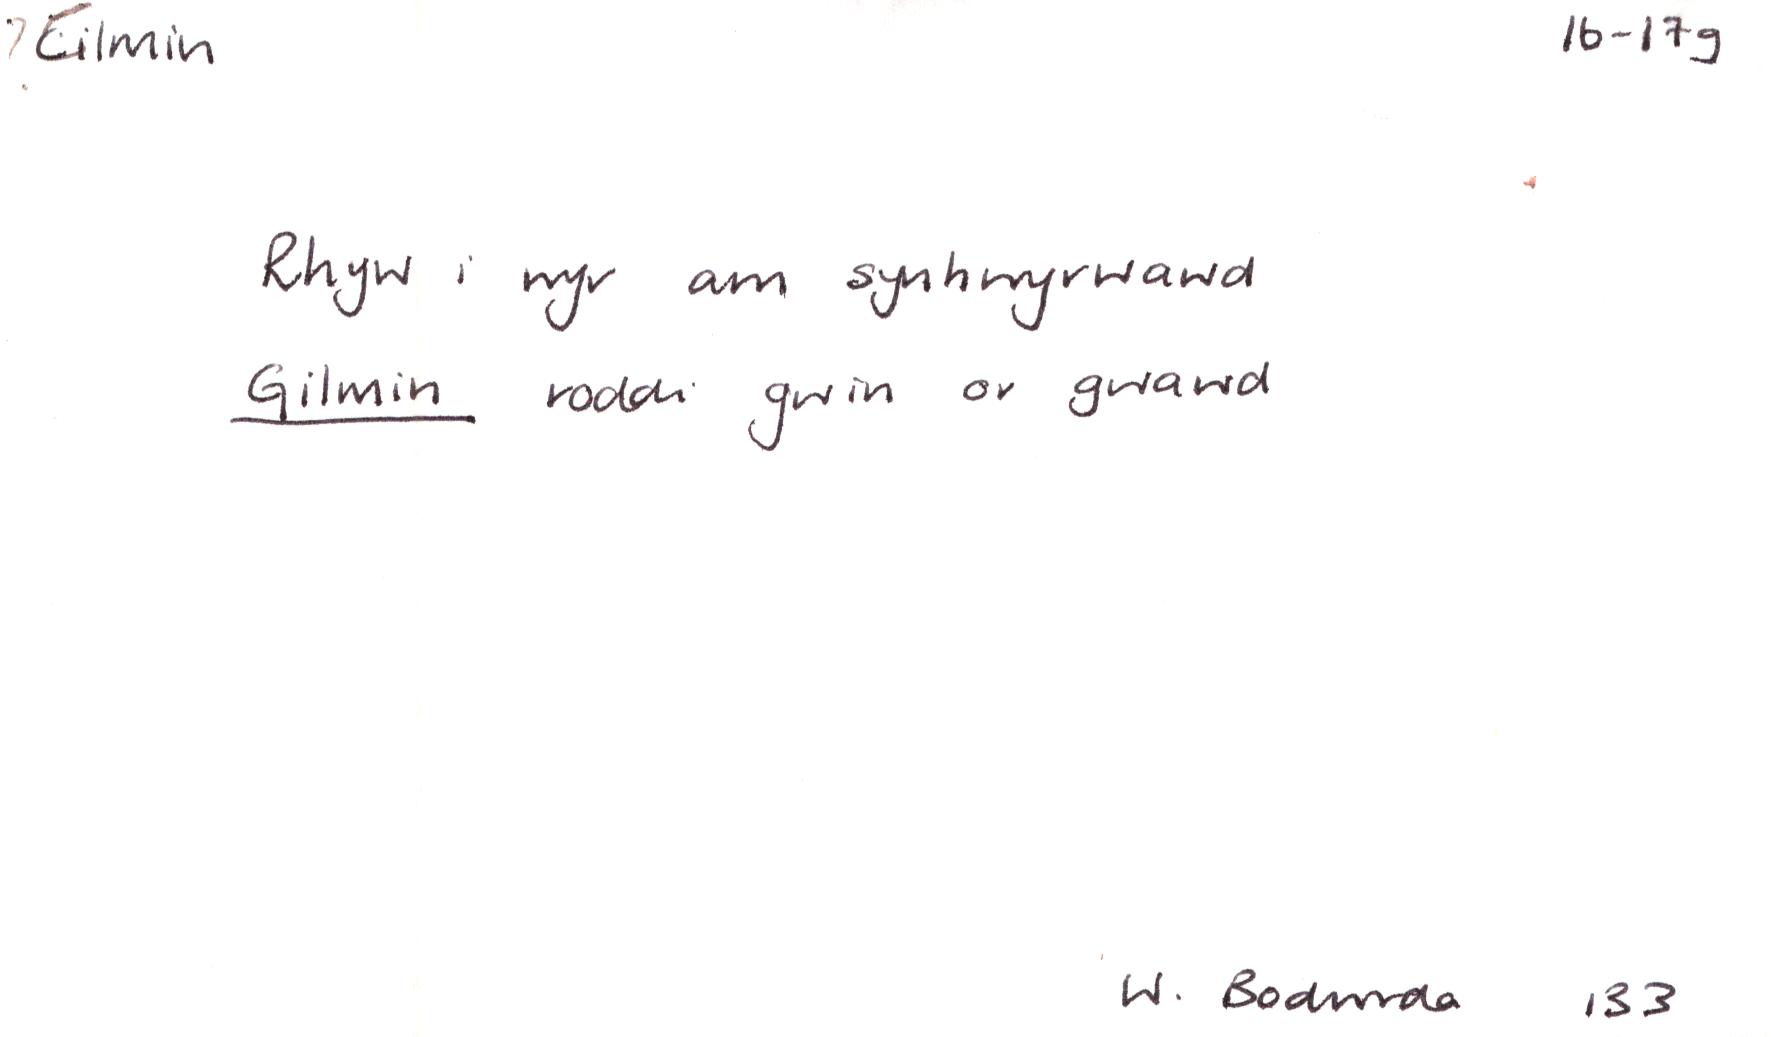 ?Eilmin 16-17g
Rhyw i wyr am synhwyrwawd
Gilmin roddi gwin or gwawd
W. Bodwrda 133